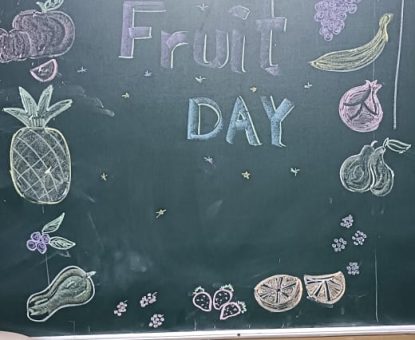 Fruit
DAY